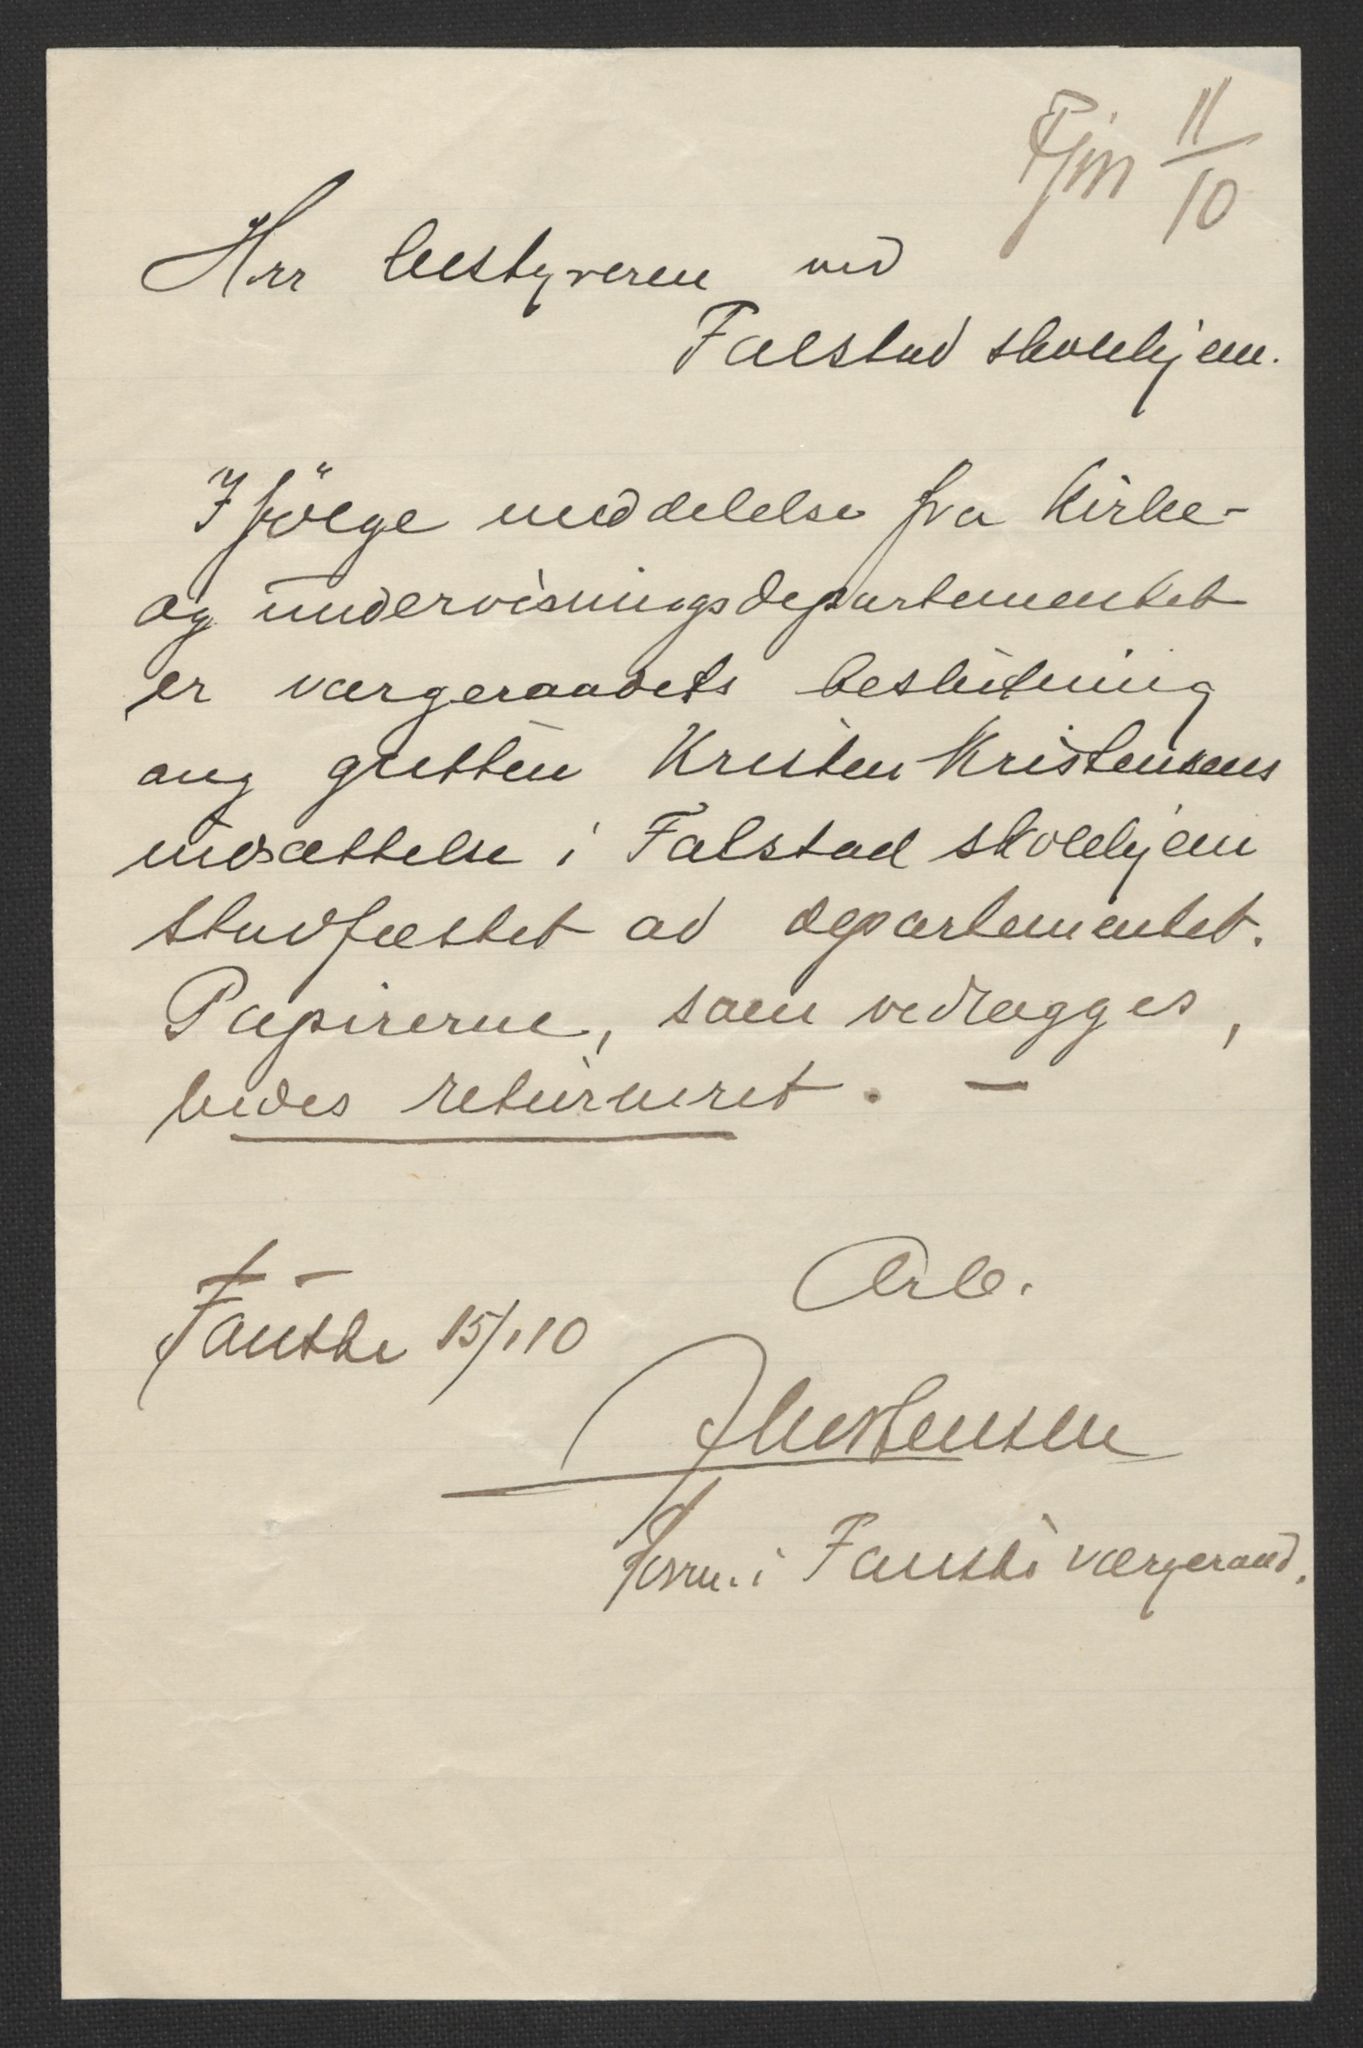 Fjm 11/10
Hrr bestyreren ved
Falstad skolehjem.
Ifölge meddelelse fra Kirke-
og undervisningsdepartementet
er værgeraadets beslutning
ang gutten Kristen Kristensens
indsættelse i Falstad skolehjem
stadfæstet av departementet.
Papirerne, som vedlægges,
bedes returneret. —
Ærb.
Fauske 15/1 10
Christensen
form. i Fauske værgeraad.